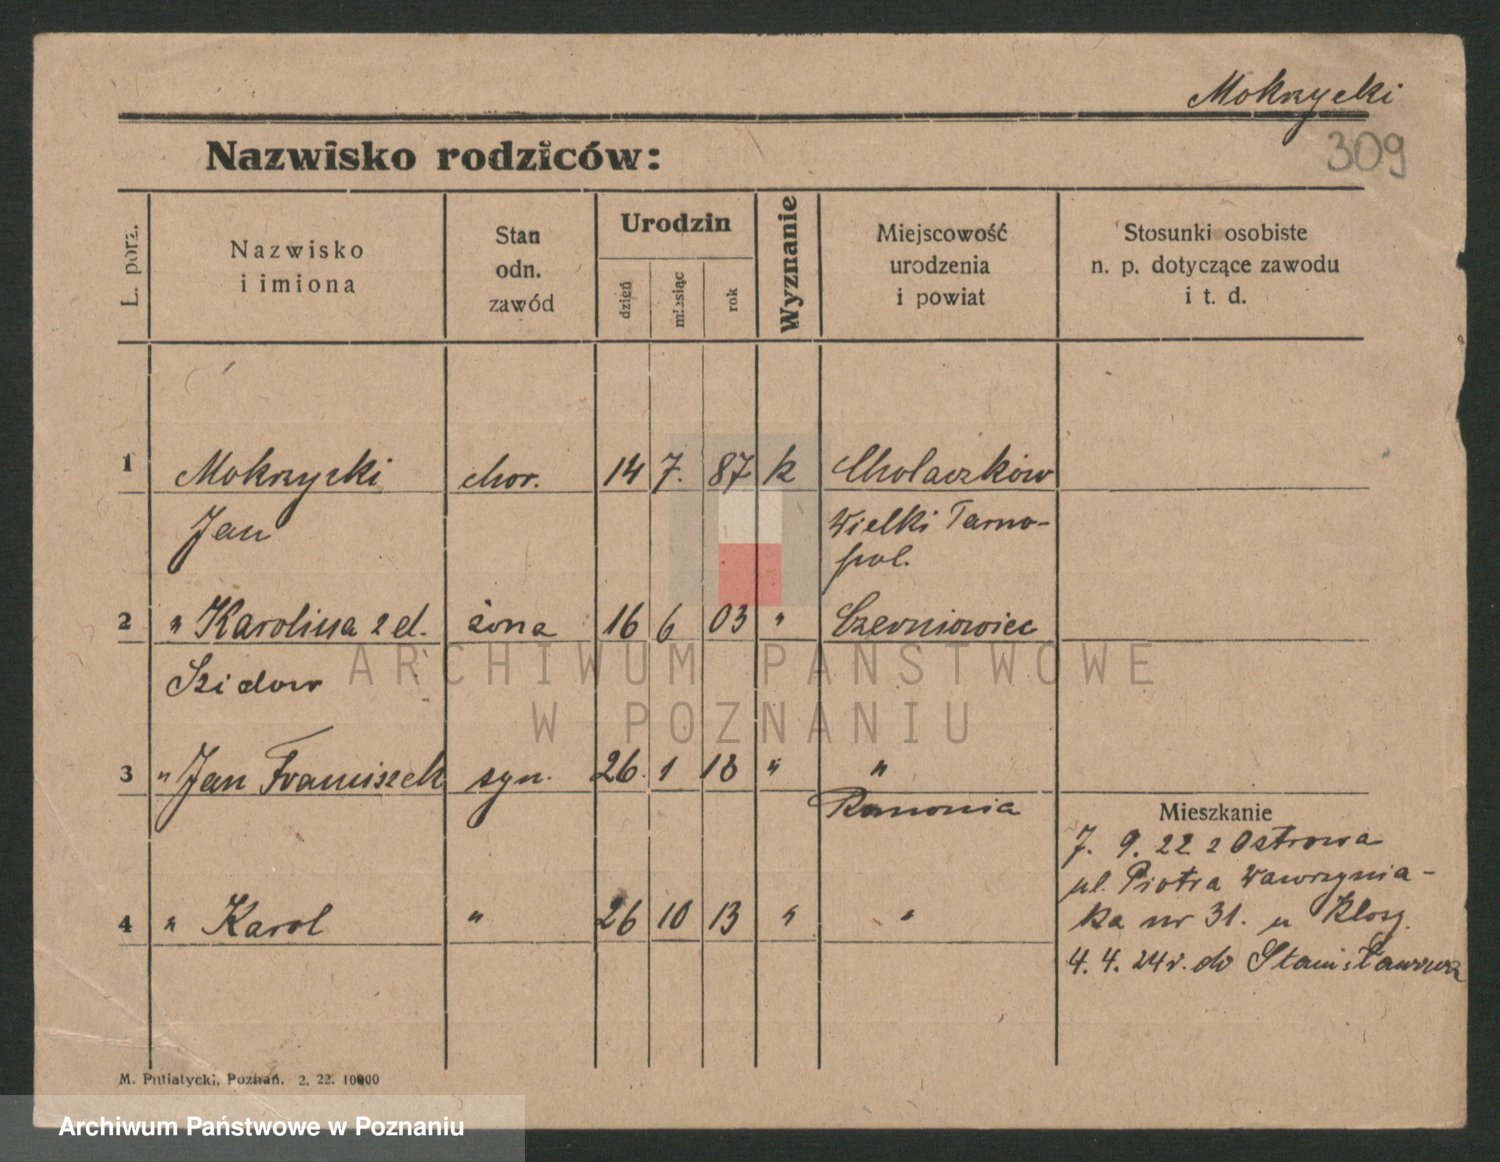 Mokrzycki
309
Nazwisko rodziców:
L. porz.
Nazwisko
i imiona
Stan
odn.
zawód
Urodzin
dzień
miesiąc
rok
Wyznanie
Miejscowość
urodzenia
i powiat
Stosunki osobiste
n. p. dotyczące zawodu
i t. d.
1 Mokrzycki chor. 14 7. 87 k Chodaczków
Jan Wielki Tarno-
pol.
2 " Karolina z d. żona 16 6 03 " Czerniowiec
Szidow
3 " Jan Franciszek syn. 26. 1 18 " "
Ranonia
Mieszkanie
7. 9. 22 z Ostrowa
ul. Piotra Wawrzynia-
ka nr 31. u Klosy.
4 " Karol " 26 10 13 " "
4. 4. 24 r. do Stanisławowa
M. Putiatycki, Poznań. 2. 22. 10000
ARCHIWUM PAŃSTWOWE
W POZNANIU
Archiwum Państwowe w Poznaniu